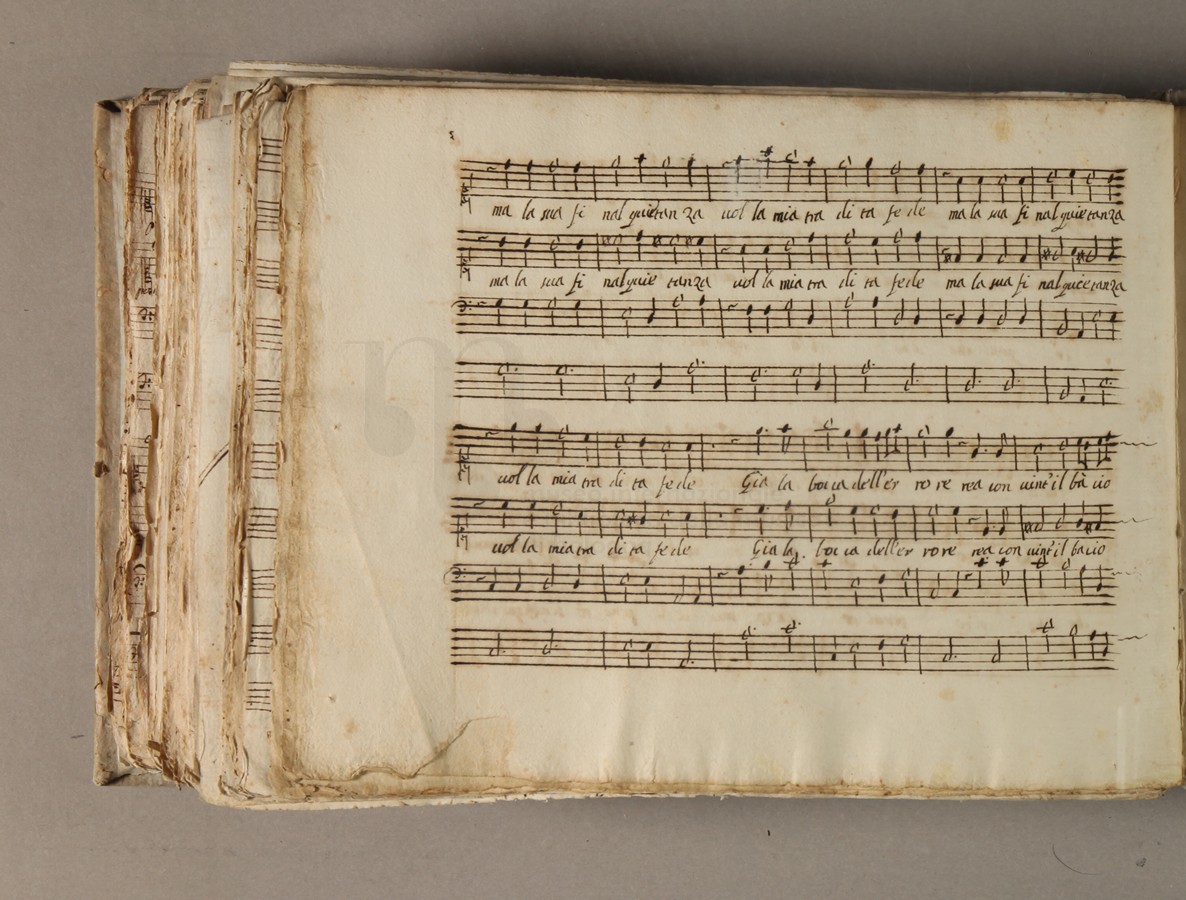 ma la sua fi nal quietan za uol la mia tra di ta fe de ma la sua fi nal quie tanza
ma la sua fi nal quie tanza uol la mia tra di ta fede ma la sua fi nal quie tanza
uol la mia tra di ta fe de Gia la bocca dell'er ro re rea con uint'il ba cio
uol la mia tra di ta fe de Gia la bocca dell'er rore rea con uint'il bacio